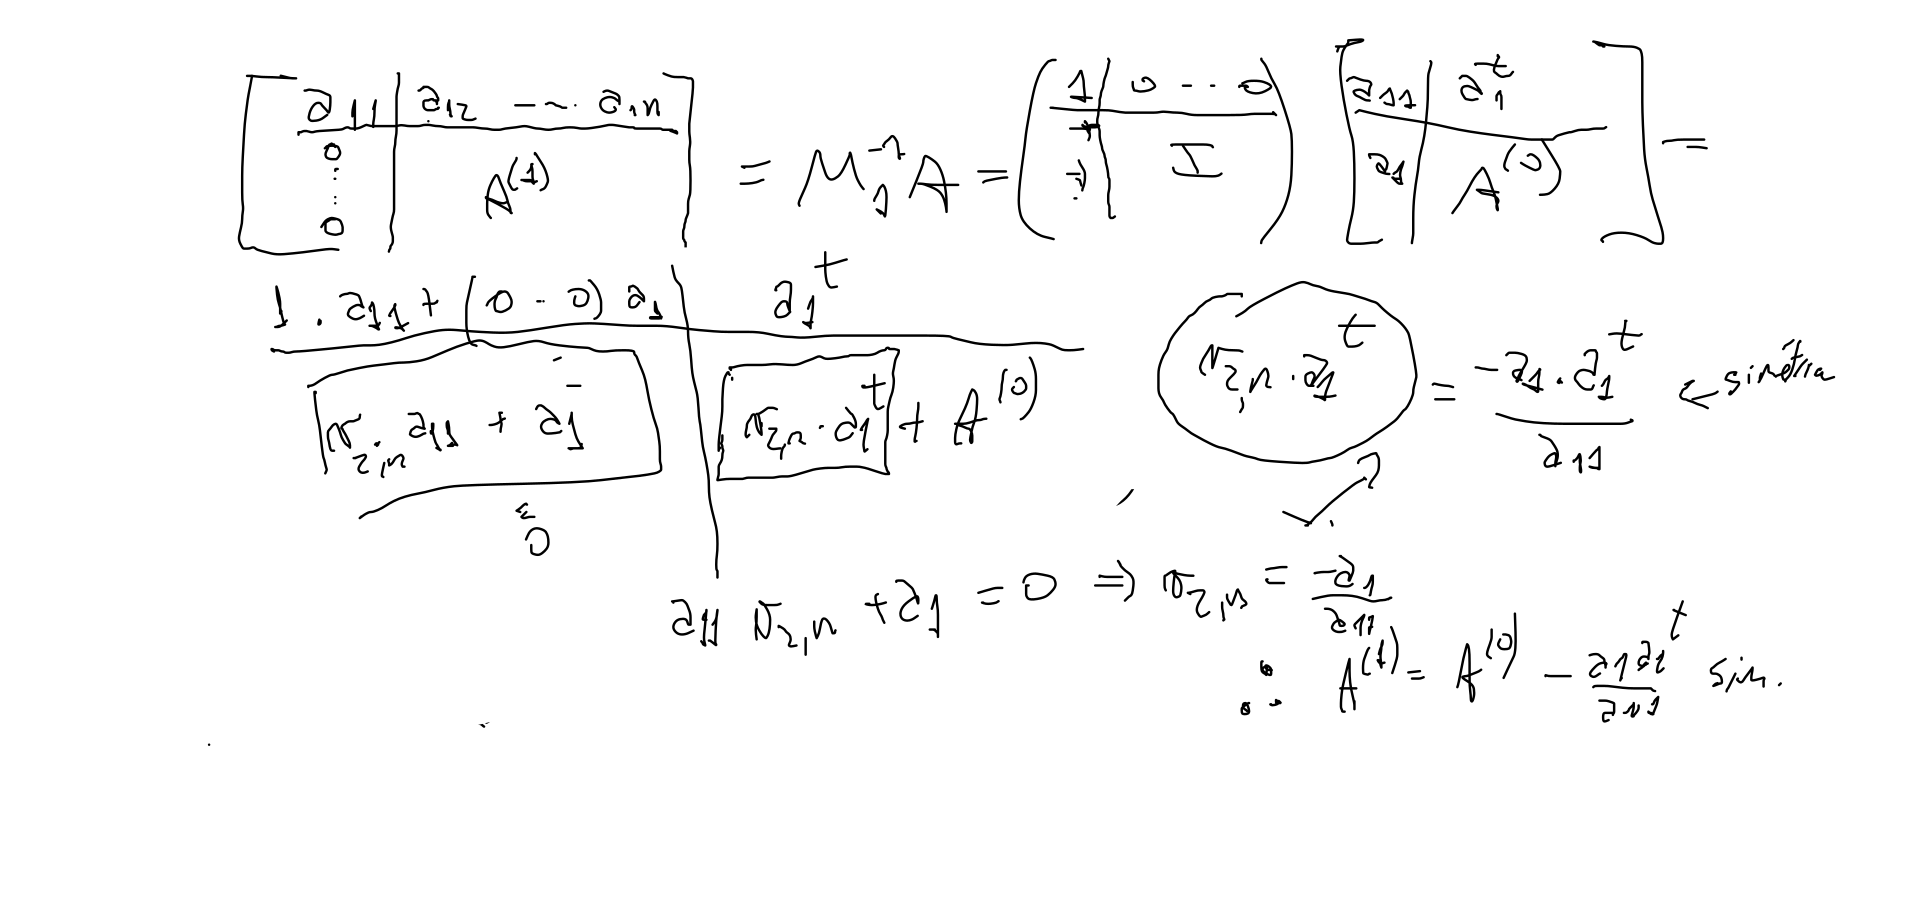 [ a11 | a12 --~- a1n ; 0 ⋮ 0 | A^(1) ] = M_1^-1 A = ( 1 | 0 -- 0 ; | I ) [ a11 | a_1^t ; a_1 | A^(0) ] =
1 . a11 + (0 -- 0) a_1 | a_1^t
σ_2,n a11 + a_1 | σ_2,n · a_1^t + A^(0)
σ_2,n · a_1^t = -a_1 · a_1^t / a11 ← simetria
0
a11 σ_2,n + a_1 = 0 ⇒ σ_2,n = -a_1 / a11
∴ A^(1) = A^(0) - a_1 a_1^t / a11 sim.